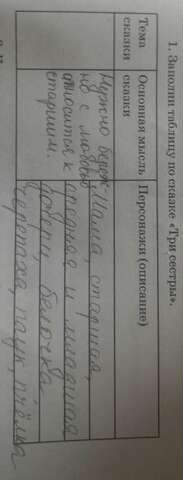 1. Заполни таблицу по сказке «Три сестры».
Тема сказки
Основная мысль сказки
Персонажи (описание)
Нужно береж-
но с любовью
относится к
старшим.
Мама, старшая,
средняя и младшая
дочери, белочка
черепаха, паук, пчёлка